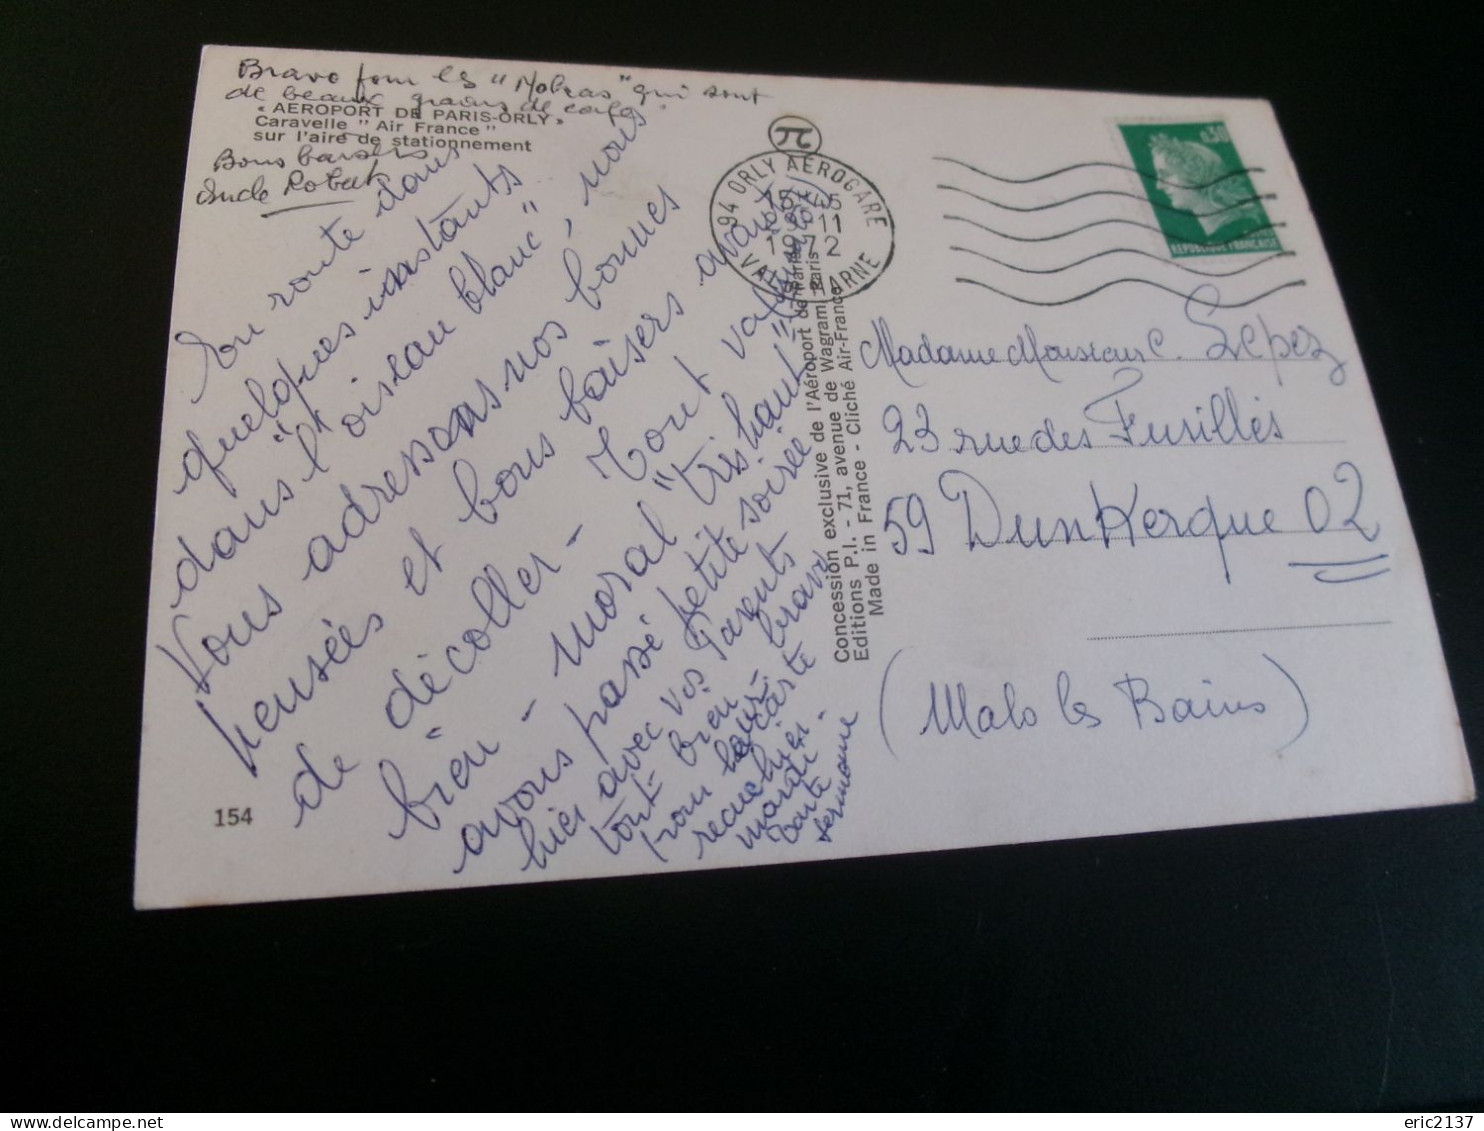 Bravo pour les "Mokas" qui sont
de beaux grains de café.
« AEROPORT DE PARIS-ORLY »
Caravelle " Air France "
sur l'aire de stationnement
Bons baisers
Oncle Robert
En route dans
quelques instants
dans "l'oiseau blanc", nous
Vous adressons nos bonnes
pensées et bons baisers avant
de décoller - Tout va
bien - moral "très haut"
avons passé petite soirée
hier avec vos Parents
tout bien - bravo
pour leur carte
mardi
carte
semaine
154
94 ORLY AÉROGARE
15-45
11
1972
VAL DE MARNE
π
Concession exclusive de l'Aéroport de Paris
Editions P.I. - 71, avenue de Wagram, Paris
Made in France - Cliché Air-France
0,30
REPUBLIQUE FRANÇAISE
Madame Monsieur C. Lepez
23 rue des Fusillés
59 Dunkerque 02
(Malo les Bains)
eric2137